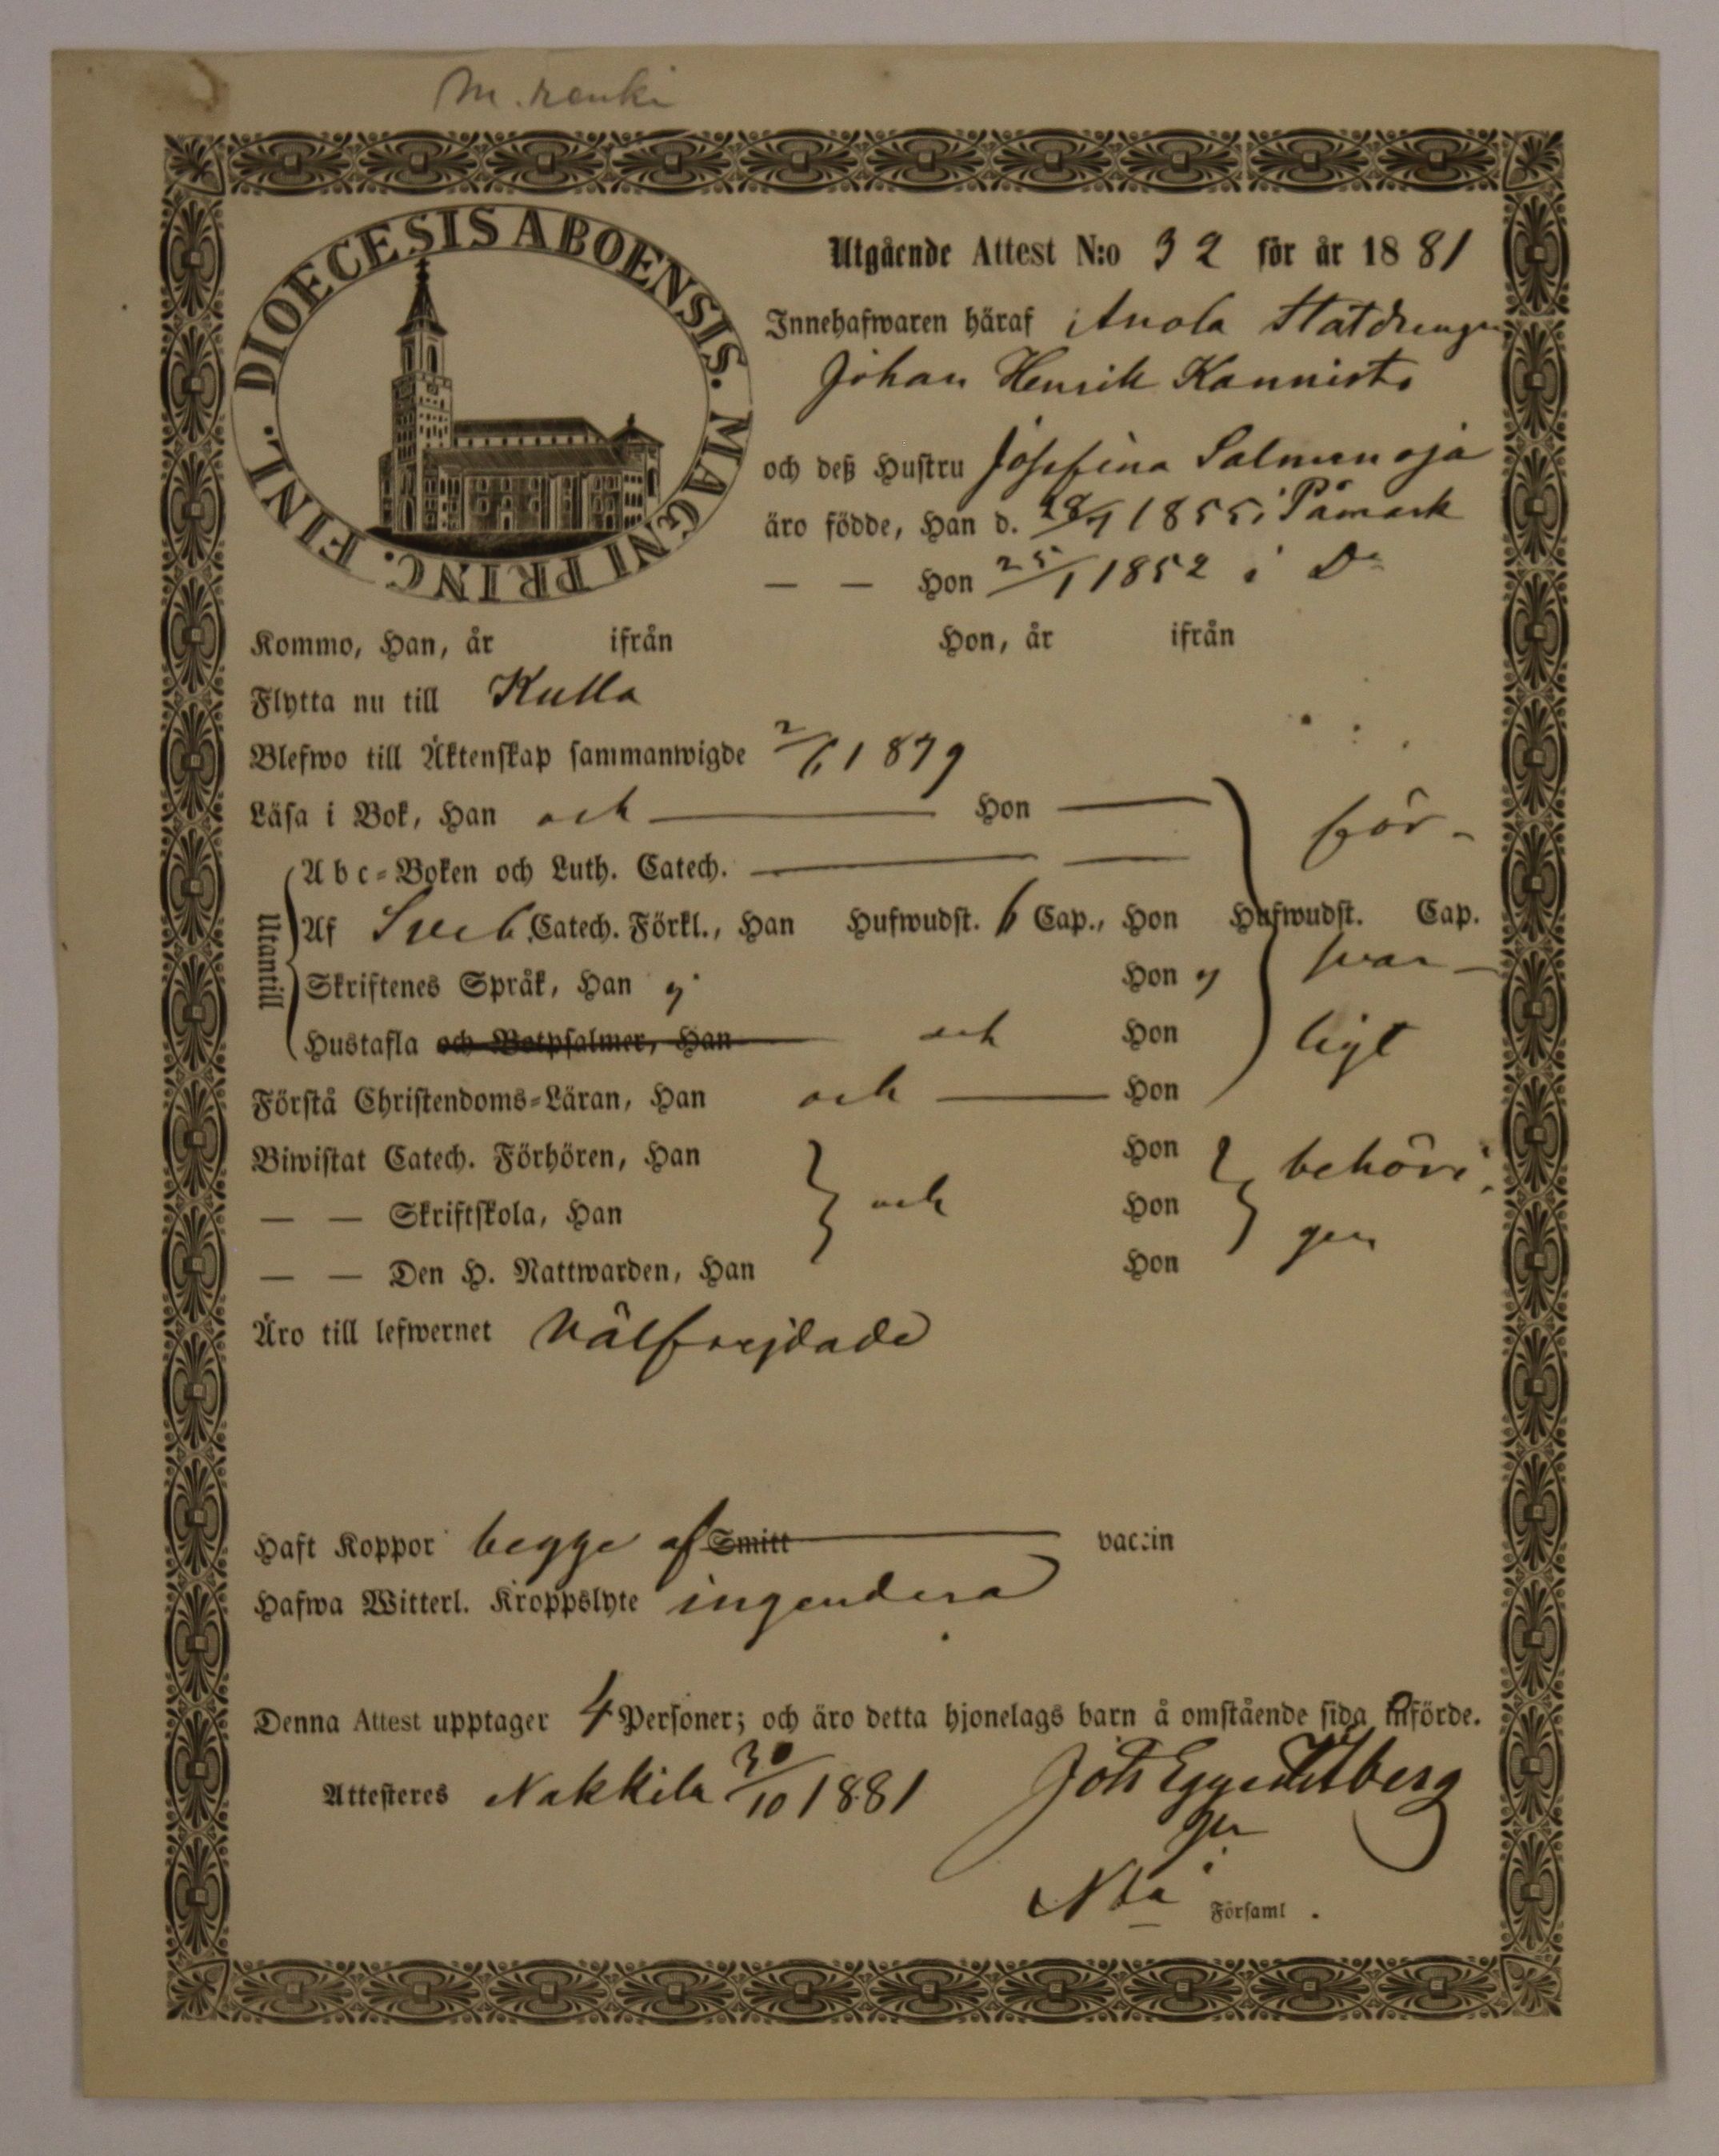 M. renki
DIOECESIS ABOENSIS. MAGNI PRINC. FINL.
Utgående Attest N:o 32 för år 1881
Innehafwaren häraf Anola Statdrengen
Johan Henrik Kannisto
och deß Hustru Josefina Salmenoja
äro födde, Han d. 28/7 1855 i Påmark
— — Hon 25/1 1852 i Do
Kommo, Han, år ifrån Hon, år ifrån
Flytta nu till Kulla
Blefwo till Äktenskap sammanwigde 2/6 1879
Läsa i Bok, Han och — Hon — för-
Utantill
Abc-Boken och Luth. Catech. — —
Af Sveb. Catech. Förkl., Han Hufwudst. 6 Cap., Hon Hufwudst. Cap.
Skriftenes Språk, Han ej Hon ej svar-
Hustafla och Botpsalmer, Han och Hon ligt
Förstå Christendoms-Läran, Han och — Hon
Biwistat Catech. Förhören, Han Hon behöri-
— — Skriftskola, Han och Hon gen
— — Den H. Nattwarden, Han Hon
Äro till lefwernet välfrejdade
Haft Koppor begge af Smitt — vaccin
Hafwa Witterl. Kroppslyte ingendera
Denna Attest upptager 4 Personer; och äro detta hjonelags barn å omstående sida införde.
Attesteres Nakkila 30/10 1881
i
Nla Församl.